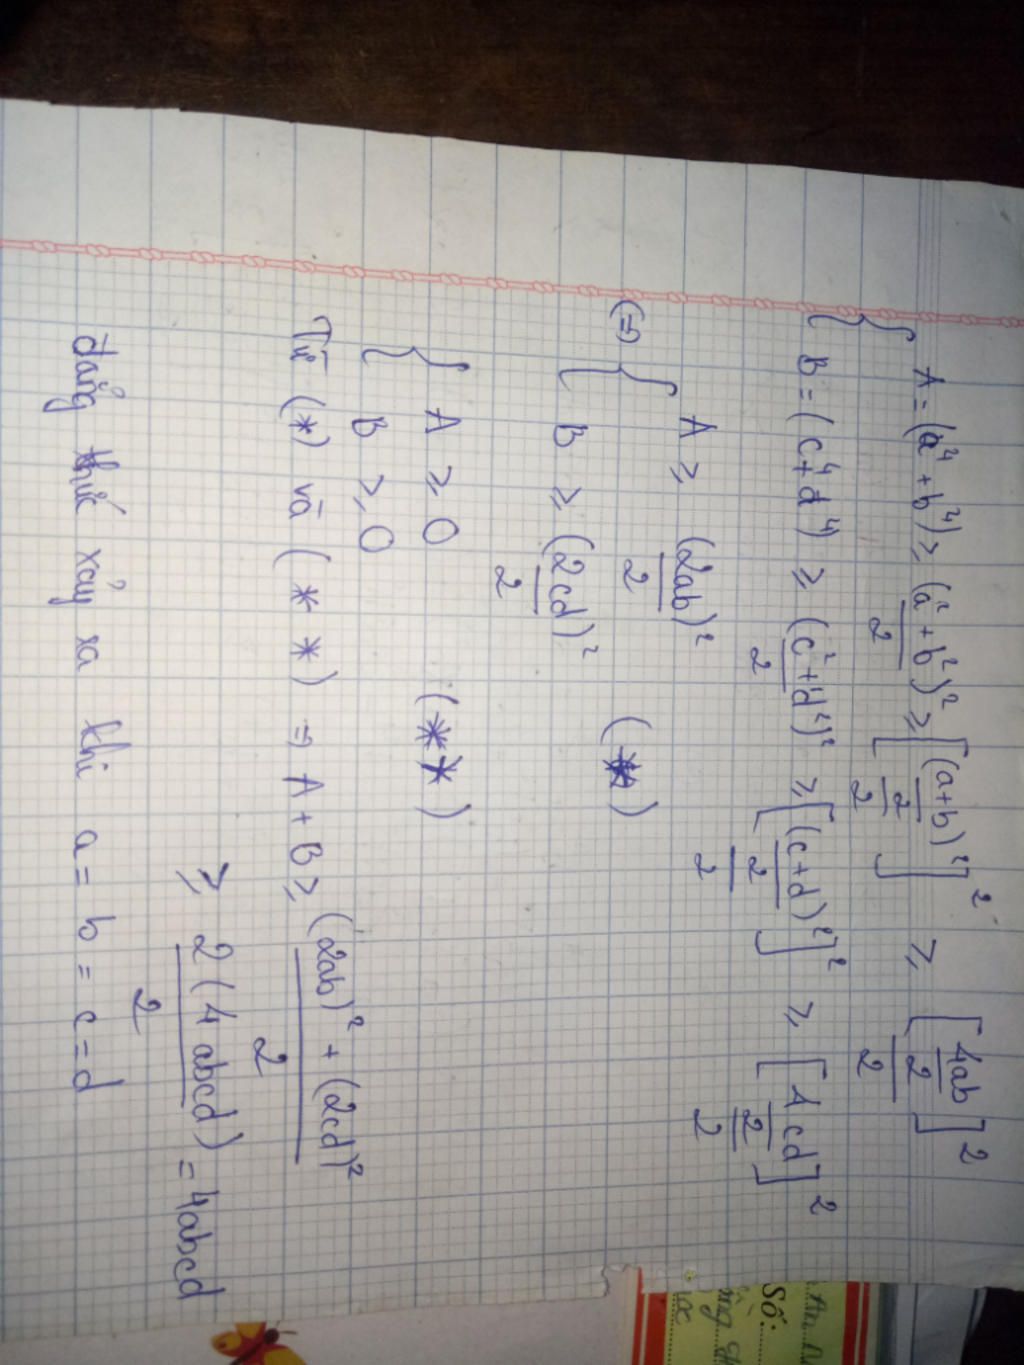 { A = (a⁴ + b⁴) ≥ (a² + b²)²/2 ≥ [(a+b)²/2]²/2 ≥ [4ab/2]²/2
B = (c⁴ + d⁴) ≥ (c² + d²)²/2 ≥ [(c+d)²/2]²/2 ≥ [4cd/2]²/2
(=) { A ≥ (2ab)²/2
B ≥ (2cd)²/2 (*)
{ A ≥ 0
B ≥ 0 (**)
Từ (*) và (**) => A + B ≥ ((2ab)² + (2cd)²)/2
≥ 2(4abcd)/2 = 4abcd
đẳng thức xảy ra khi a = b = c = d
Số: